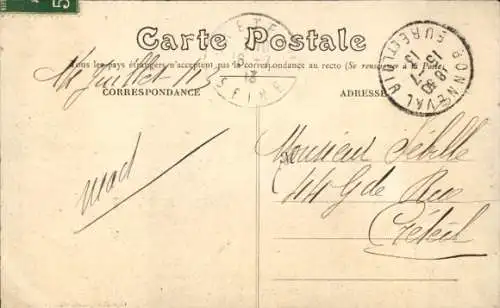 5
Carte Postale
Tous les pays étrangers n'acceptent pas la correspondance au recto (Se renseigner à la Poste)
14 Juillet 1913
CORRESPONDANCE
ADRESSE
BONNEVAL
EURE ET LOIR
SEINE
Monsieur
44 Gde Rue
Créteil